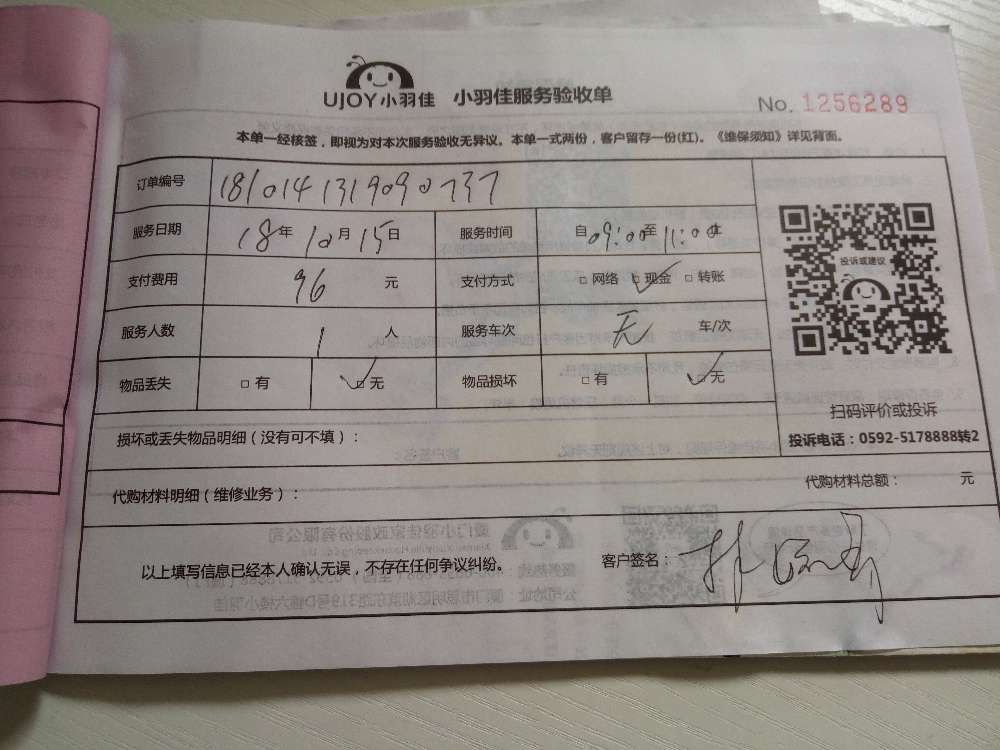 UJOY小羽佳 小羽佳服务验收单
No. 1256289
本单一经核签，即视为对本次服务验收无异议。本单一式两份，客户留存一份(红)。《维保须知》详见背面。
订单编号 1810141319090737
服务日期 18年10月15日 服务时间 自09:00至11:00止
支付费用 96 元 支付方式 □网络 □现金 □转账
服务人数 1 人 服务车次 无 车/次
物品丢失 □有 □无 物品损坏 □有 □无
投诉或建议
扫码评价或投诉
投诉电话：0592-5178888转2
损坏或丢失物品明细（没有可不填）：
代购材料明细（维修业务）： 代购材料总额： 元
以上填写信息已经本人确认无误，不存在任何争议纠纷。 客户签名：